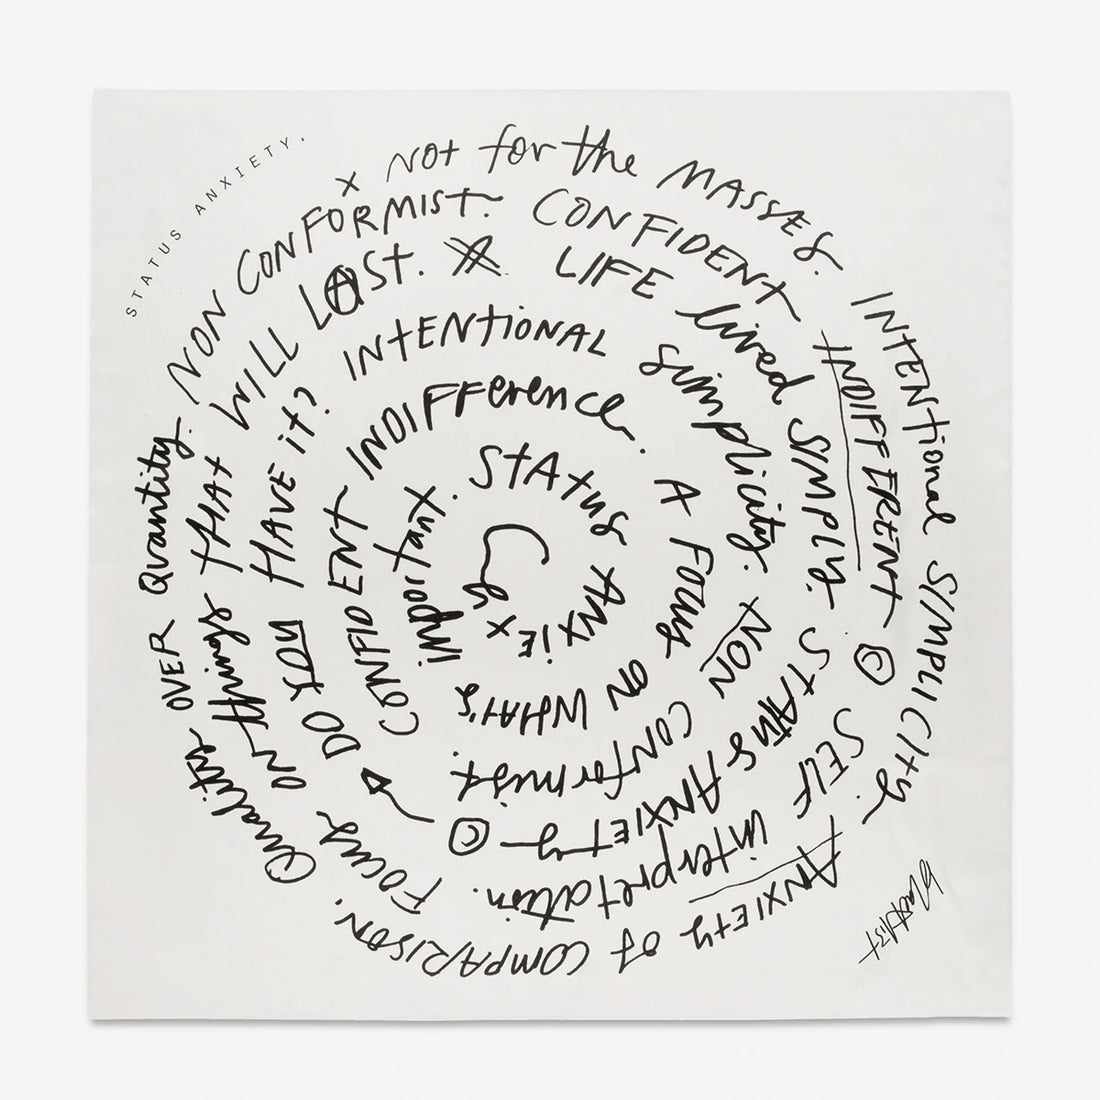 STATUS ANXIETY.
x Not for the MASSES.
INTENtional SIMPLICITY.
ANXIETY of COMPARISON.
Quality OVER Quantity.
NON CONFORMIST.
CONFIDENT INDIFFERENT ©
SELF interpretation.
Focus ON things tHAt WILL LAST.
LIFE lived SIMPLY.
STATUS ANXIETY ©
DO YOU HAVE it?
INTENtIONAL simplicity.
NON CONformist.
CONFIDENT INDIFFerence.
A FOCUS ON WHAT'S important.
StAtus ANXIE